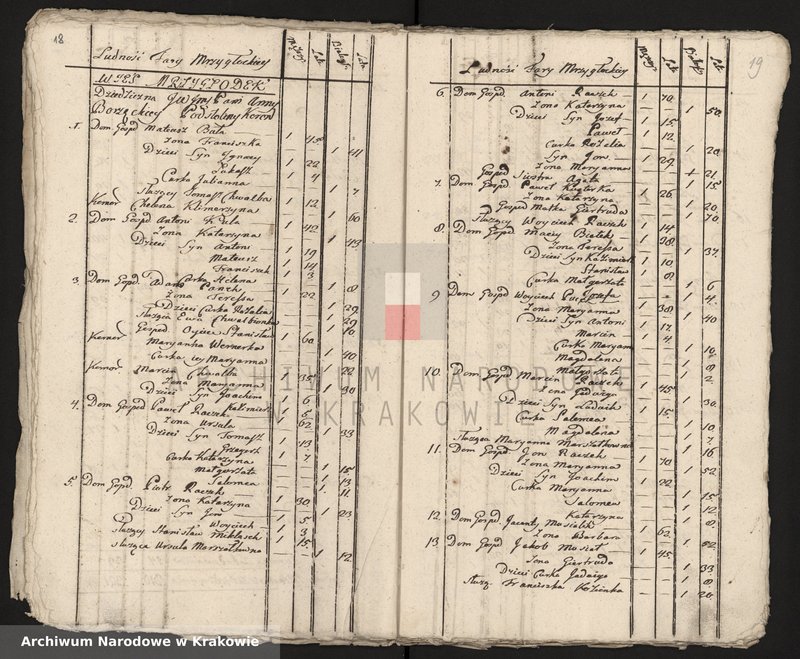 18
Ludność Fary Mrzygłockiey
Mężczy
Lat
Białogł
Lata
WIES MRZYGŁODEK
Dziedziczna Jaśnej Pani Anny
Borzęckiey Podstoliny Koron
1. Dom Gospd Mateusz Bała 1 48
Zona Franciszka 1 41
Dzieci Syn Ignacy 1 22
Łukasz 1 4
Curka Julianna 1 7
Służący Tomasz Chwałba 1 12
Komor Chelena Klimarzyna 1 60
2. Dom Gospd Antoni 1 42
Zona Katarzyna 1 43
Dzieci Syn Antoni 1 19
Mateusz 1 14
Franciszek 1 3
Curka Helena 1 8
3. Dom Gospd Adam 1 22
Zona Teressa 1 29
Dzieci Curka Rozalia 1
Służąca Ewa Chwałbionka 1 10
Gospod Oyciec Stanisław 1 60
Komor Maryanna Wernerka 1 40
Curka iey Maryanna 1 22
Komor Marcin Chwałba 1 35
Zona Maryanna 1 30
Dzieci Syn Joachim 1 6
Kazimierz 1 6
4. Dom Gospod Paweł Raczek 1 62
Zona Ursula 1 33
Dzieci Syn Tomasz 1 13
Grzegorz 1 7
Curka Katarzyna 1 15
Małgorzata 1 13
Salomea 1 11
5. Dom Gospd Piotr Raczek 1 30
Zona Katarzyna 1 23
Dzieci Syn Jan 1 5
Woyciech 1 3
Służący Stanisław Miklasch 1 15
służąca Ursula Marszałkowna 1 12
19
Ludność Fary Mrzygłockiey
Mężczy
Lat
Białogł
Lat
6. Dom Gospd Antoni Raczek 1 70
Zona Katarzyna 1 50
Dzieci Syn Jozef 1 15
Paweł 1 12
Curka Rozalia 1 20
Syn Jan 1 29
Zona Maryanna 1 21
Gospd Siostra Agata 1 15
7. Dom Gospd Paweł 1 26
Zona Katarzyna 1 20
Gospod Matka Giertruda 1 70
Służący Woyciech Raczek 1 14
8. Dom Gospd Maciey Białek 1 38
Zona Teressa 1 37
Dzieci Syn Kazimierz 1 10
Stanisław 1 8
Curka Małgorzata 1 6
Jozefa 1 4
9 Dom Gospd Woyciech 1 38
Zona Maryanna 1 40
Dzieci Syn Antoni 1 17
Marcin 1 4
Curka Maryann 1 10
Magdalena 1 8
Małgorzata 1 2
10. Dom Gospd Marcin Raczek 1 45
Zona Jadwiga 1 30
Dzieci Syn Ludwik 1 15
Curka Salomea 1 10
Magdalena 1 7
Służąca Maryanna Marszałkowna 1 16
11. Dom Gospd Jan Raczek 1 70
Zona Maryanna 1 52
Dzieci Syn Joachim 1 22
Curka Maryanna 1 15
Salomea 1 12
Katarzyna 1 8
12 Dom Gospd Jacenty Musialek 1 62
Zona Barbara 1 62
13 Dom Gospd Jakob Musiał 1 45
Zona Giertruda 1 33
Dzieci Curka Jadwiga 1 8
służ. Franciszka 1 20
ARCHIWUM NARODOWE
W KRAKOWIE
Archiwum Narodowe w Krakowie